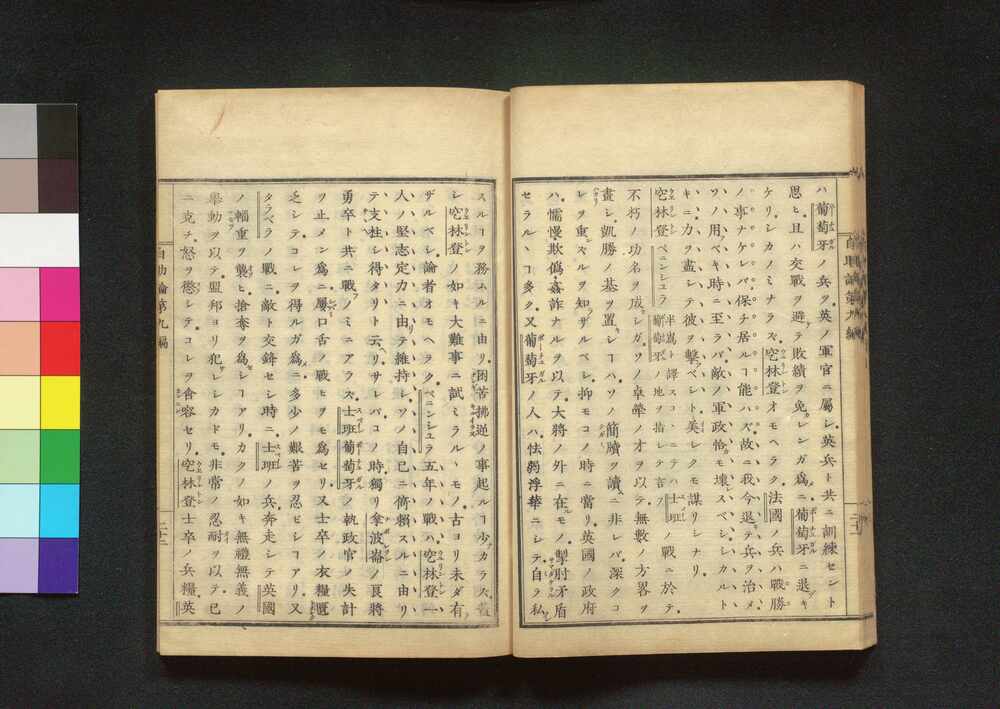 ハ葡萄牙ノ兵ヲ英ノ軍官ニ屬シ英兵ト共ニ訓練セント
思ヒ且ハ交戰ヲ避テ敗績ヲ免カレンガ爲ニ葡萄牙ニ退キ
ケリシカノミナラズ空林登オモヘラク法國ノ兵ハ戰勝
ノ事ナケレバ保チ居ルコ能ハズ故ニ我今退テ兵ヲ治メ
ソノ用ベキ時ニ至ラバ敵ノ軍政恰モ壞スベシシカルト
キニ力ヲ盡シテ彼ヲ擊ベシト美シク謀リシナリ
空林登ペニンシュラ 葡萄牙ノ地ヲ指シテ言フ 士班ノ戰ニ於テ
不朽ノ功名ヲ成シガソノ卓犖ノオヲ以テ無數ノ方畧ヲ
畫シ凱勝ノ基ヲ置シーハソノ簡牘ヲ讀ニ非レバ深クコ
レヲ重スルヲ知ザルベシ抑モコノ時ニ當リ英國ノ政府
ハ懦慢欺僞姦詐ナルヲ以テ大將ノ外ニ在モノ掣肘矛盾
セラルヽコ多ク又葡萄牙ノ人ハ怯弱浮華ニシテ自ラ私
スルヿヲ務ムルニ由リ困苦拂逆ノ事起ルコ少カラズ蓋
シ空林登ノ如キ大難事ニ試ミラルヽモノ古ヨリ未ダ有
ザルベシ論者オモヘラクペニンシュラ五年ノ戰ハ空林登一
人ノ堅志定力ニ由テ維持シソノ自己ニ倚賴スルニ由リ
テ支柱シ得タリト云リサレバコノ時獨リ拿波崙ノ良將
勇卒ト共ニ戰ノミニアラズ士班葡萄牙ノ執政官ノ失計
ヲ止メン爲ニ屢口舌ノ戰ヒヲモ爲セリ又士卒ノ衣糧匱
乏シテコレヲ得ルガ爲ニ多少ノ艱苦ヲ忍ビシコアリ又
タラベラノ戰ニ敵ト交鋒セシ時ニ士班ノ兵奔走シテ英國
ノ輜重ヲ襲ヒ搶奪ヲ爲シーアリカクノ如キ無禮無義ノ
擧動ヲ以テ盟邦ヨリ犯サレシカドモ非常ノ忍耐ヲ以テ已
ニ克チ怒ヲ懲シテコレヲ含容セリ空林登士卒ノ兵糧英
自由論第九編
二十二